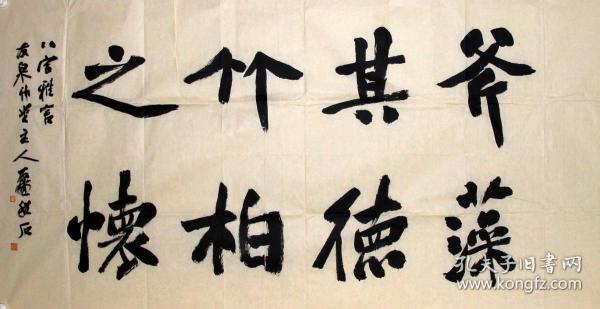 斧藻
其德
竹柏
之懷
八言雅言
友泉竹堂主人
孔夫子旧书网
www.kongfz.com